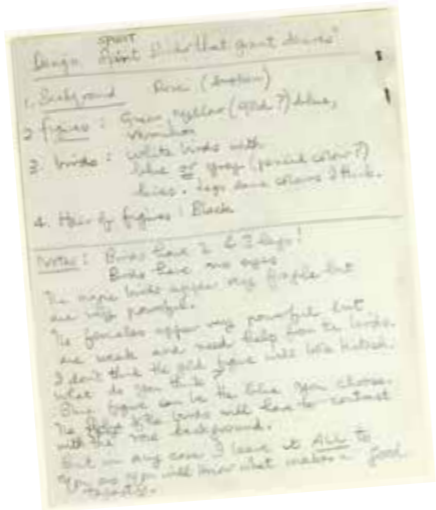 SPIRIT
Design "Spirit Birds that grant desires"
1. Background Rose (broken)
2 figures: Green, yellow (gold?) blue,
vermilion
3. birds: White birds with
blue or grey (pencil colour?)
lines. Legs same colours I think.
4. Hair of figures: Black
Notes: Birds have 2 & 3 legs!
Birds have no eyes
The birds appear very fragile but
are very powerful.
The females appear very powerful but
are weak and need help from the birds.
I don't think the gold figure will look
What do you think?
Blue figure can be the blue you choose.
The of the birds will have to contrast
with the rose background.
But in any case I leave it ALL to
you as you will know what makes a good